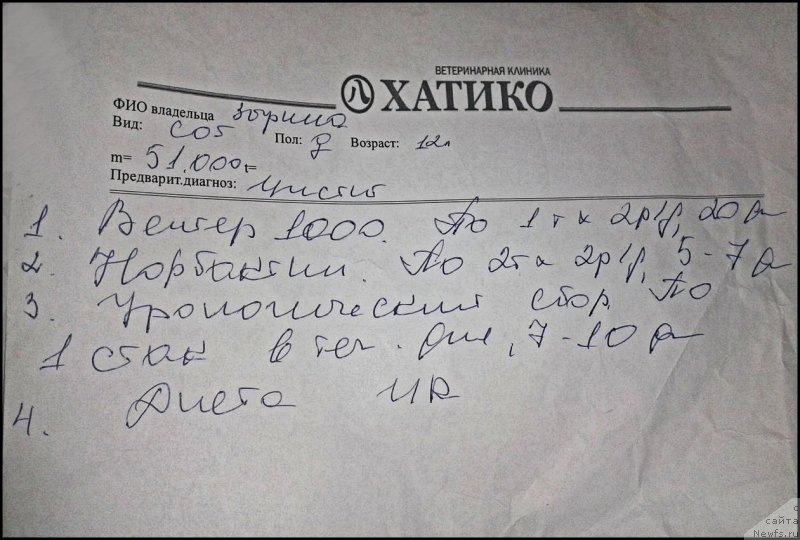 ВЕТЕРИНАРНАЯ КЛИНИКА
ХАТИКО
ФИО владельца Зорина
Вид: СОБ Пол: Возраст: 12л
m= 51.000 t=
Предварит.диагноз: Цистит
1. Вентер 1000. По 1т х 2р/д, 20 д
2. Норбактин. По 2т х 2р/д, 5-7 д
3. Урологический сбор. По
1 стак в теч. дня, 7-10 д
4. Диета
с
сайта
Newfs.ru